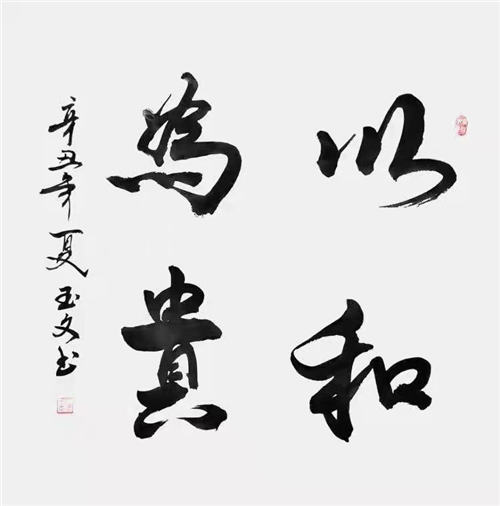 以和
為貴
辛丑年夏玉文书